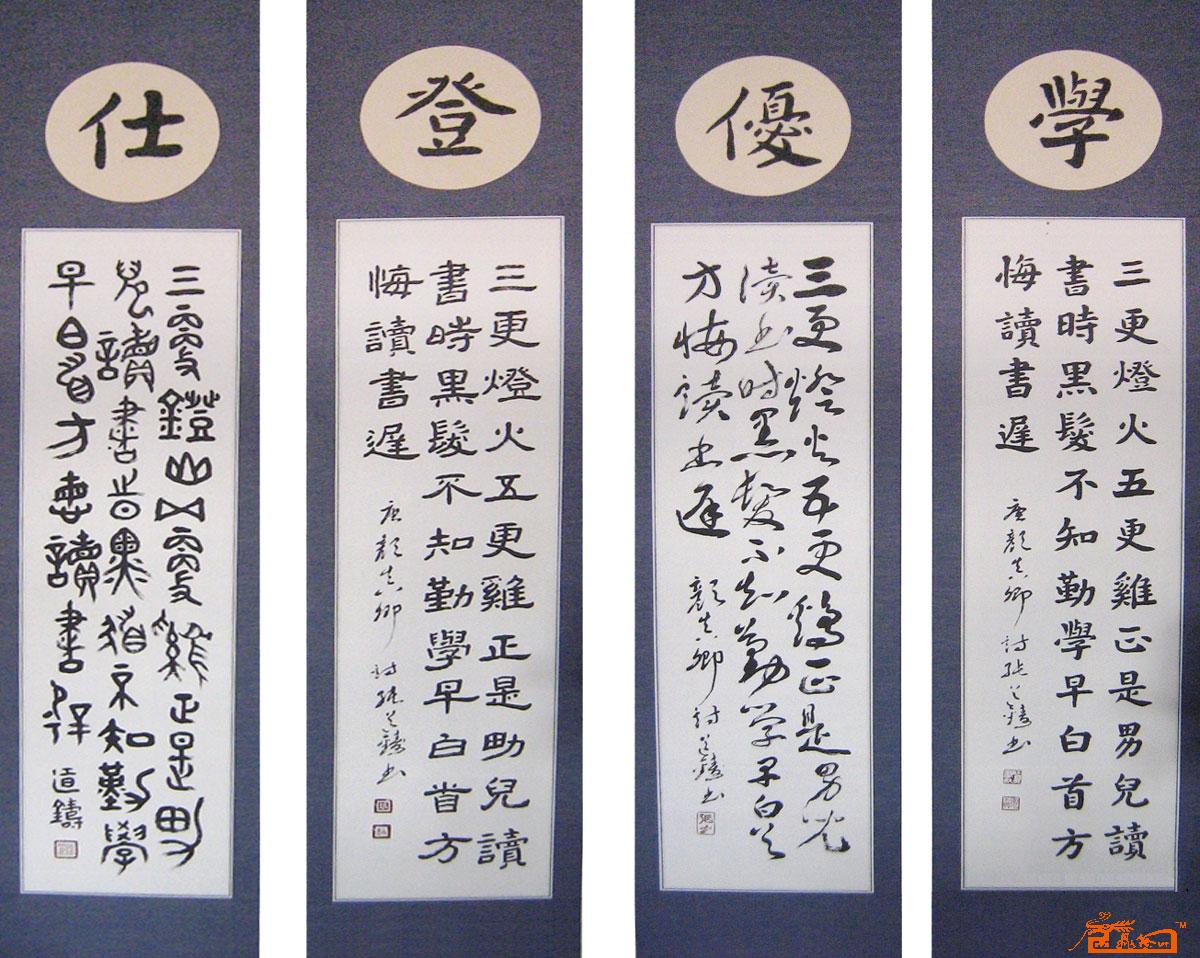 學
三更燈火五更雞正是男兒讀
書時黑髮不知勤學早白首方
悔讀書遲
唐顏真卿詩張道鑄書
優
三更燈火五更鷄正是男児
读书时黑髮不知勤学早白首
方悔读书遲
顏真卿詩道鑄书
登
三更燈火五更雞正是男兒讀
書時黑髮不知勤學早白首方
悔讀書遲
唐顏真卿詩張道鑄书
仕
三更鐙火五更雞正是男
兒讀書時黑髮不知勤學
早白首方悔讀書遲
道鑄